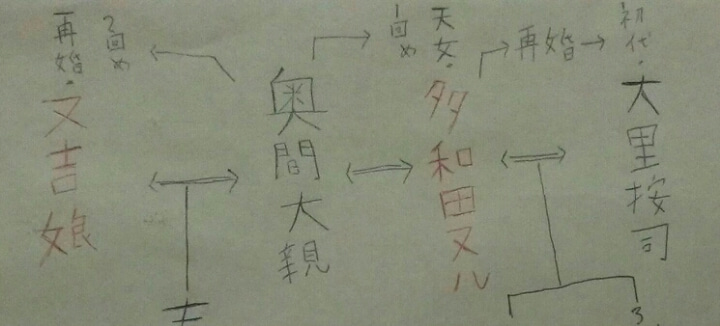 初代・大里按司
再婚
天女・多和田ヌル
1回め
奥間大親
2回め
再婚・又吉娘